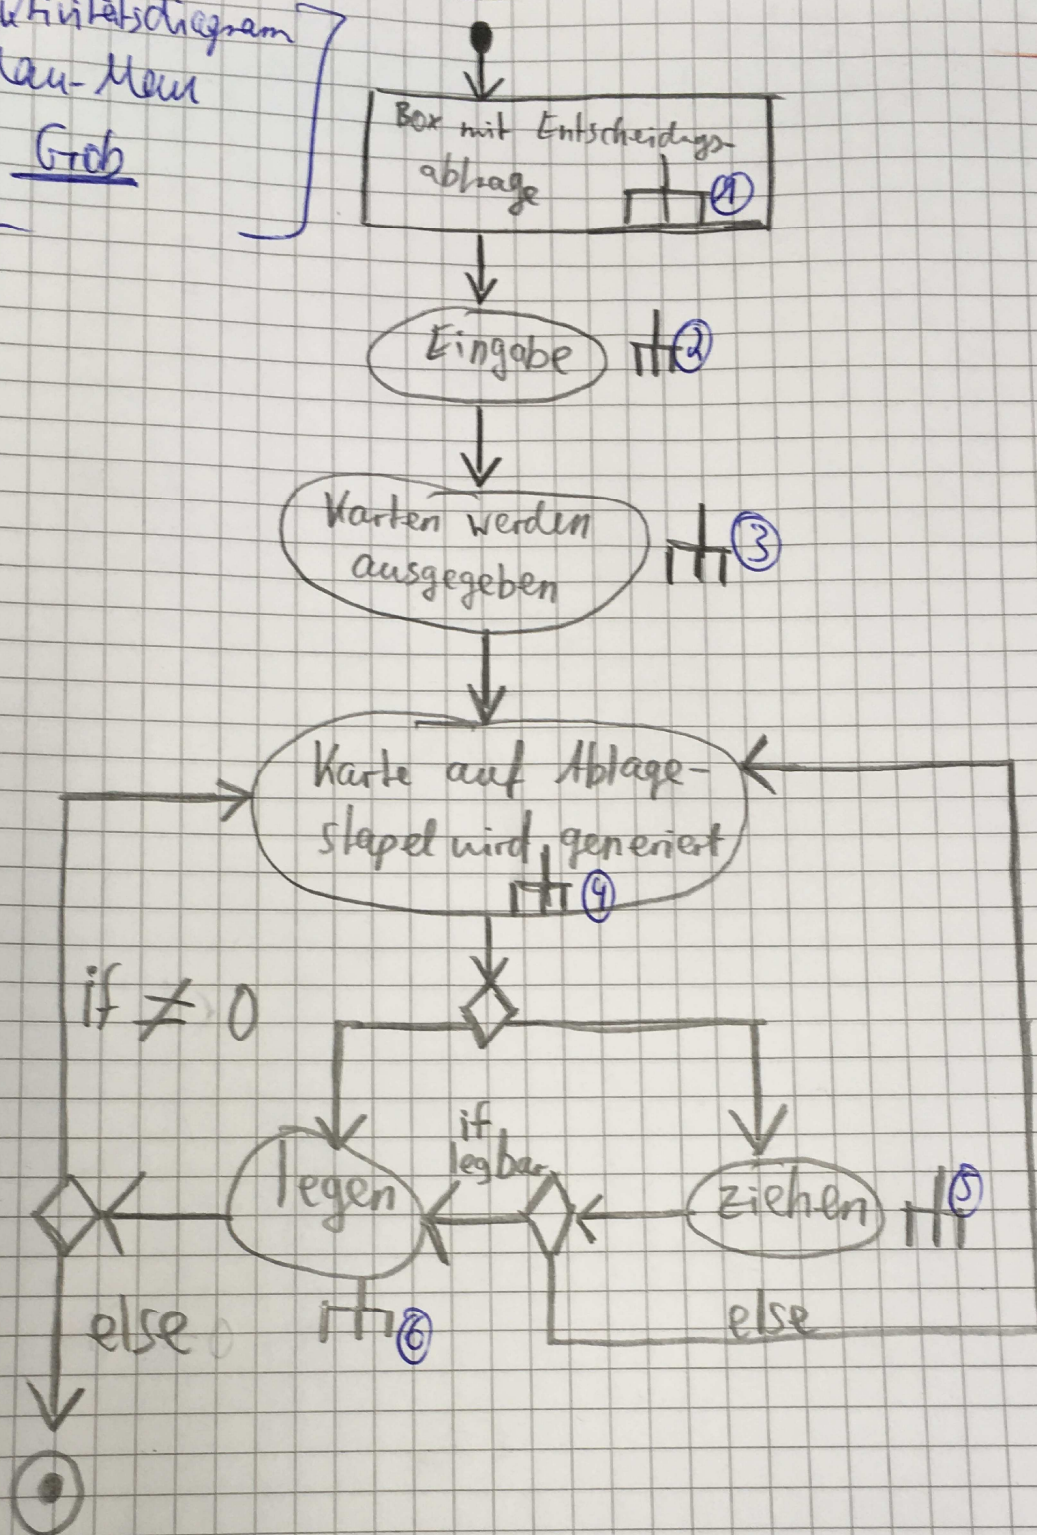 ktivitätsdiagram
Mau-Mau
Grob
Box mit Entscheidugs-
abfrage
1
Eingabe
2
Karten werden
ausgegeben
3
Karte auf Ablage-
stapel wird generiert
4
if ≠ 0
if
legbar
legen
ziehen
5
else
else
6